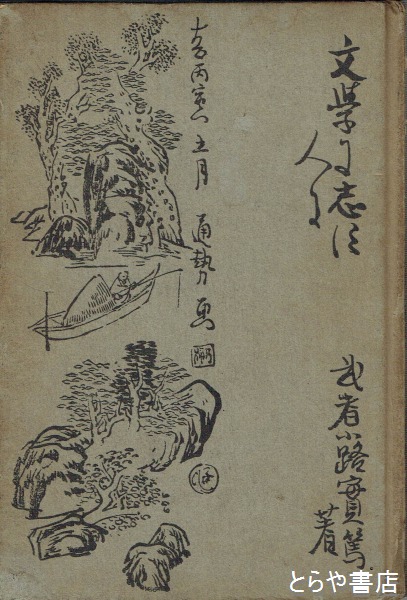 文學に志す
人に
武者小路實篤著
大正丙寅五月 通勢画
とらや書店